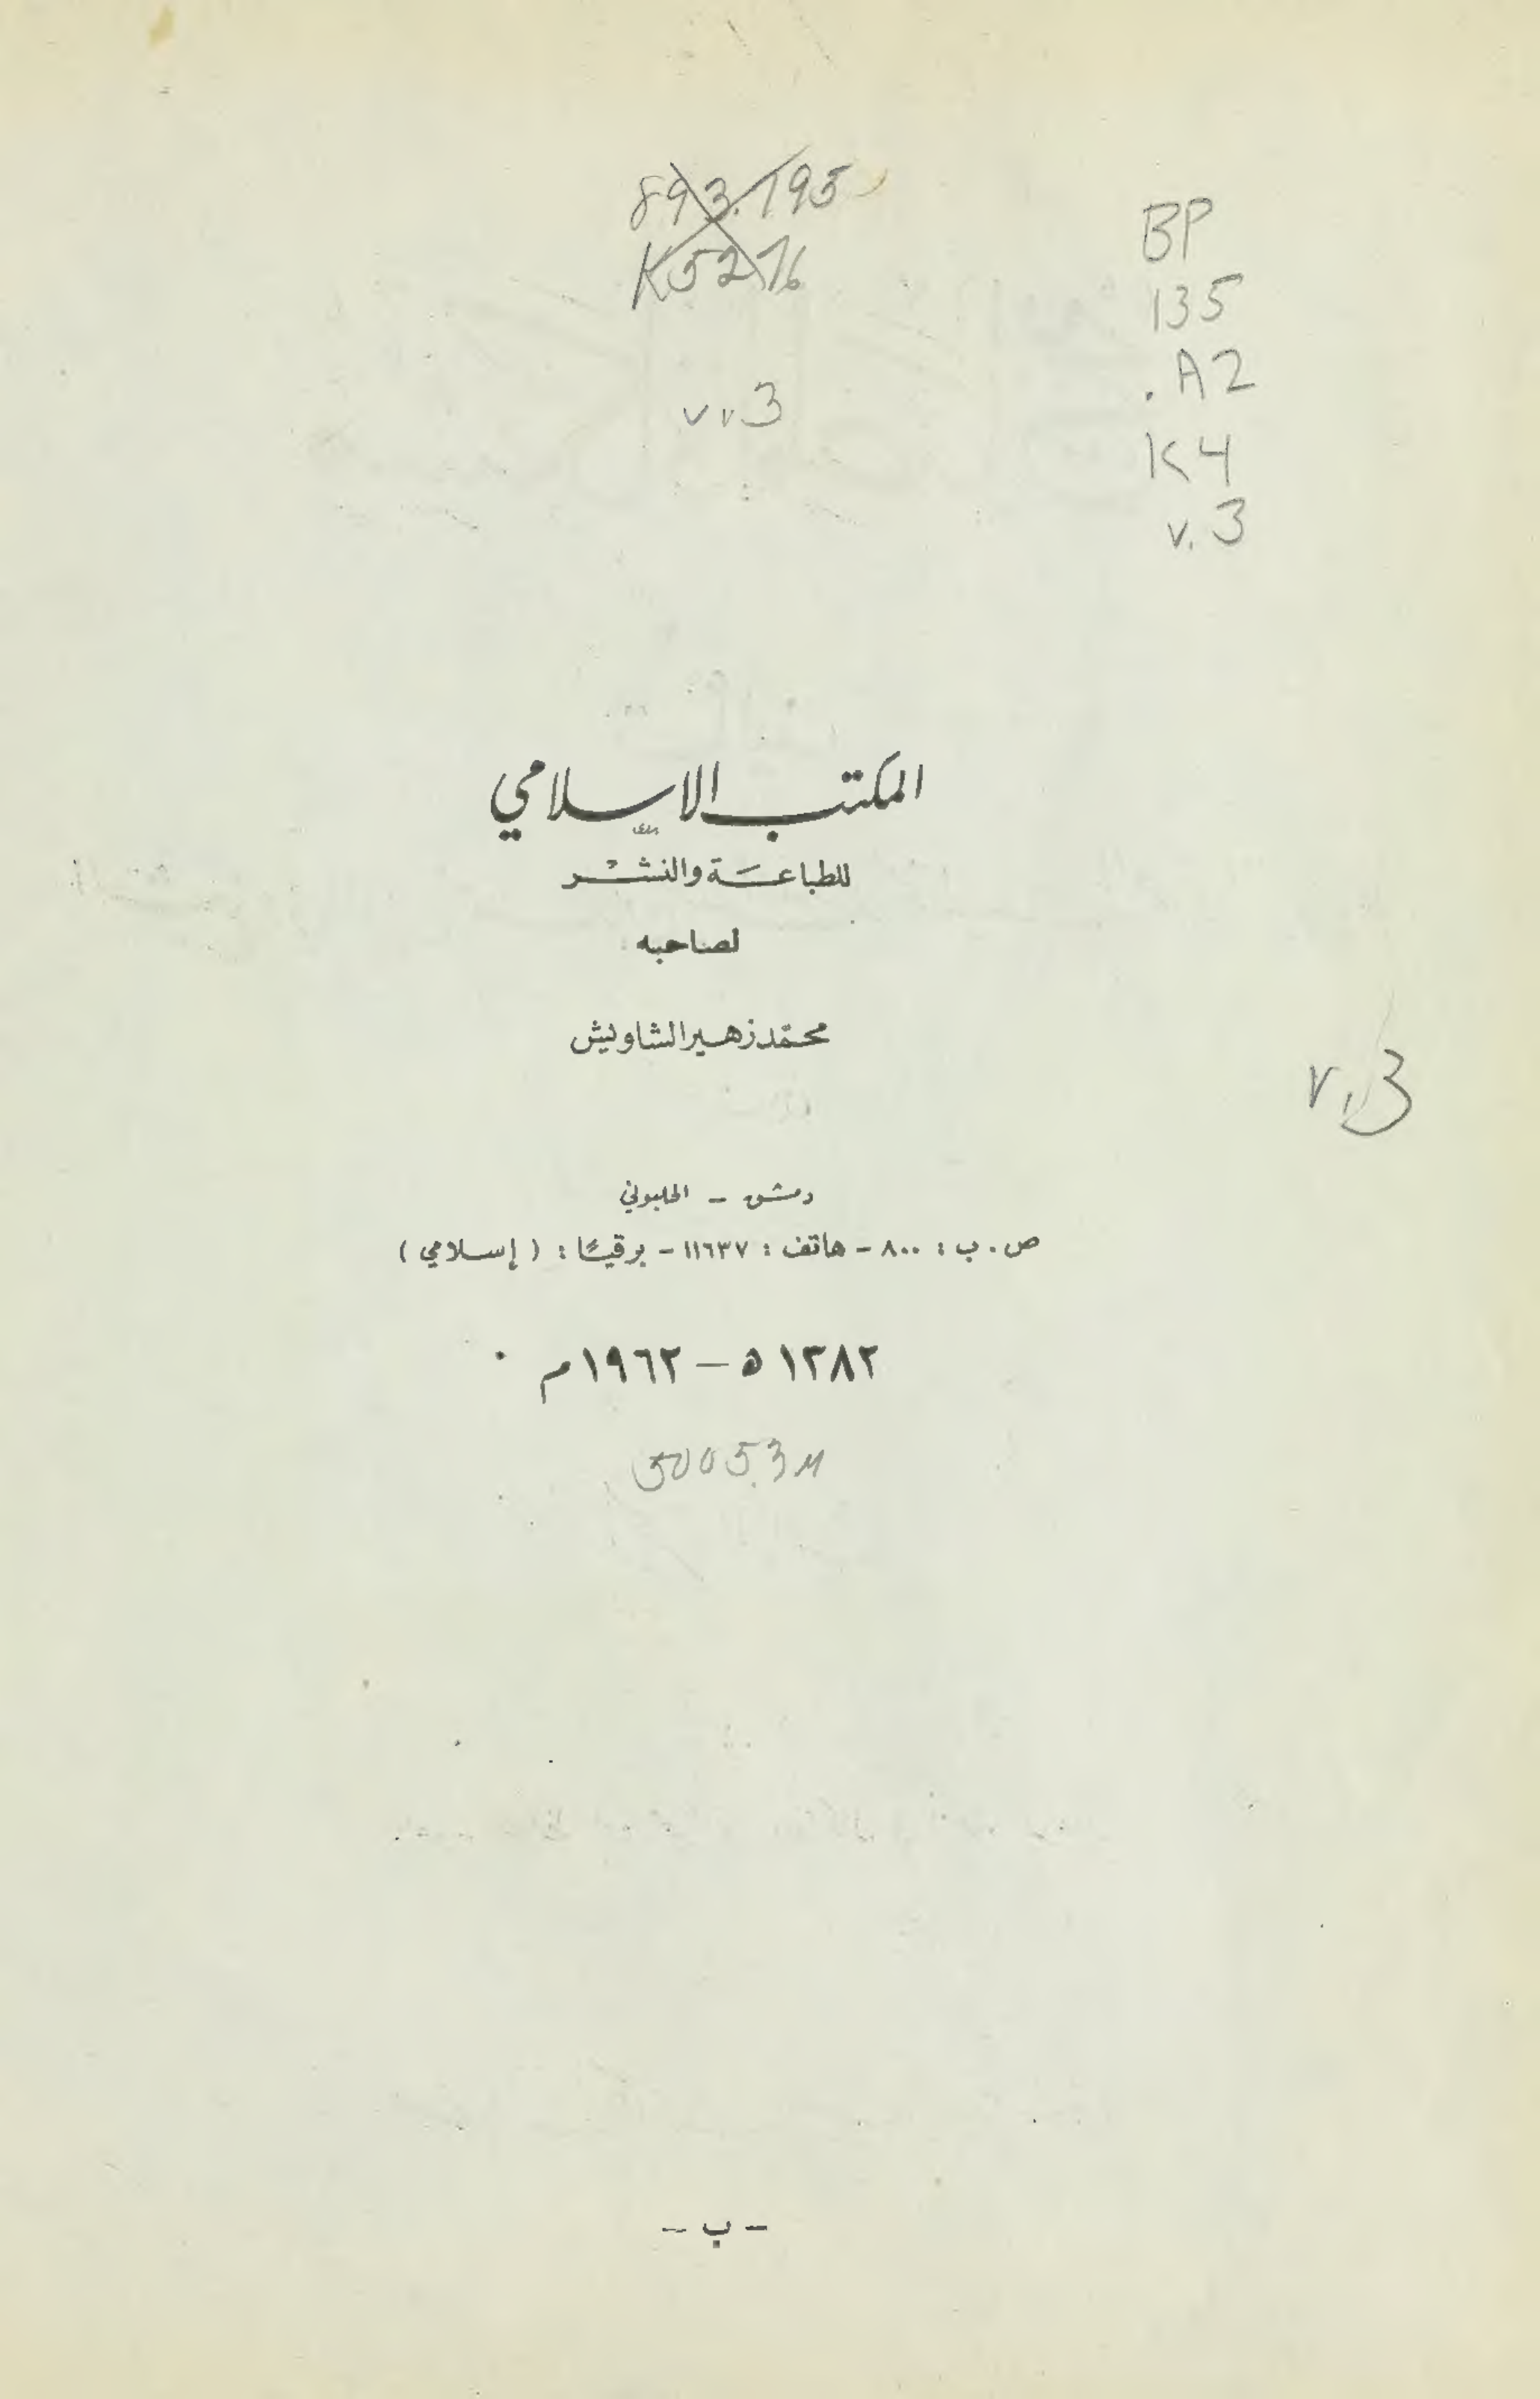 893.795
K5276
v.3
BP
135
.A2
K4
v.3
المكتب الاسلامي
للطباعة والنشر
لصاحبه
محمد زهير الشاويش
v.3
دمشق - الحلبوني
ص.ب: ٨٠٠ - هاتف: ١١٦٣٧ - برقيًا: (إسلامي)
١٣٨٢ ه - ١٩٦٢ م
50053M
- ب -